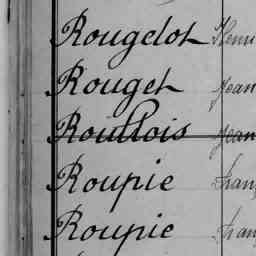 Rougelot Henri
Rouget Jean
Roullois Jean
Roupie
Roupie